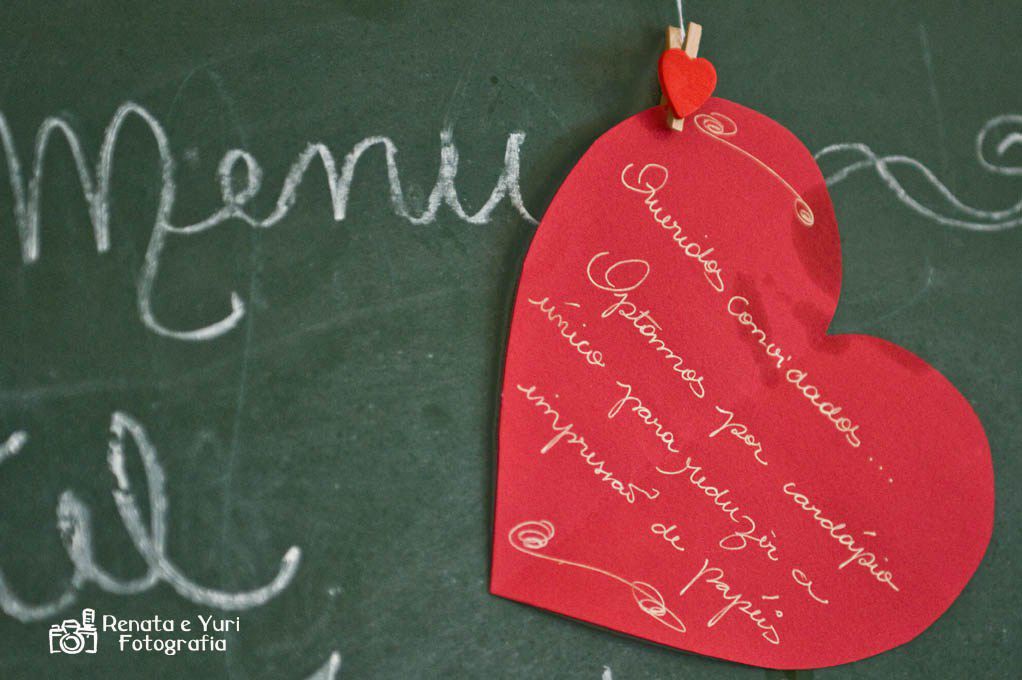 Menu
Queridos convidados...
Optamos por cardápio
único para reduzir a
impressão de papéis
Renata e Yuri
Fotografia